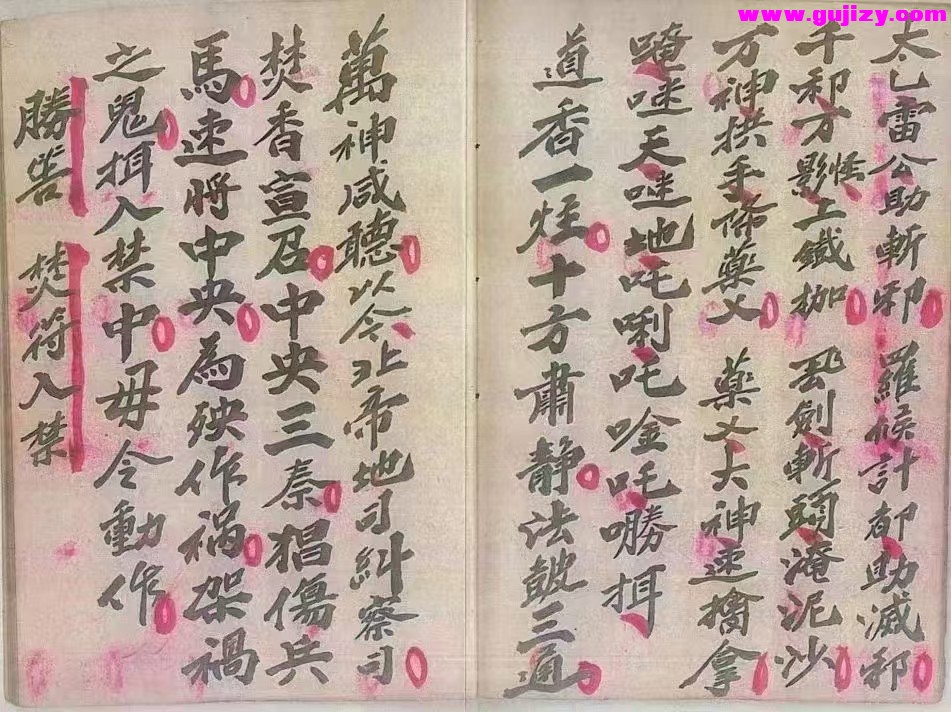 www.gujizy.com
太乙雷公助斬邪 羅候計都助滅邪
千邪万怪影上鐵枷 丑劍斬頭淹泥沙
万神拱手佈藥乂 藥乂大神速擒拿
唵哒天哒地吒唎吒唫吒嘮揖
道香一炷十方肅静法皷三通
萬神咸聽以今北帝地司糾察司
焚香宣召中央三秦猖傷兵
馬速将中央為殃作禍架禍
之鬼揖入禁中毋令動作
勝咒 焚符入禁